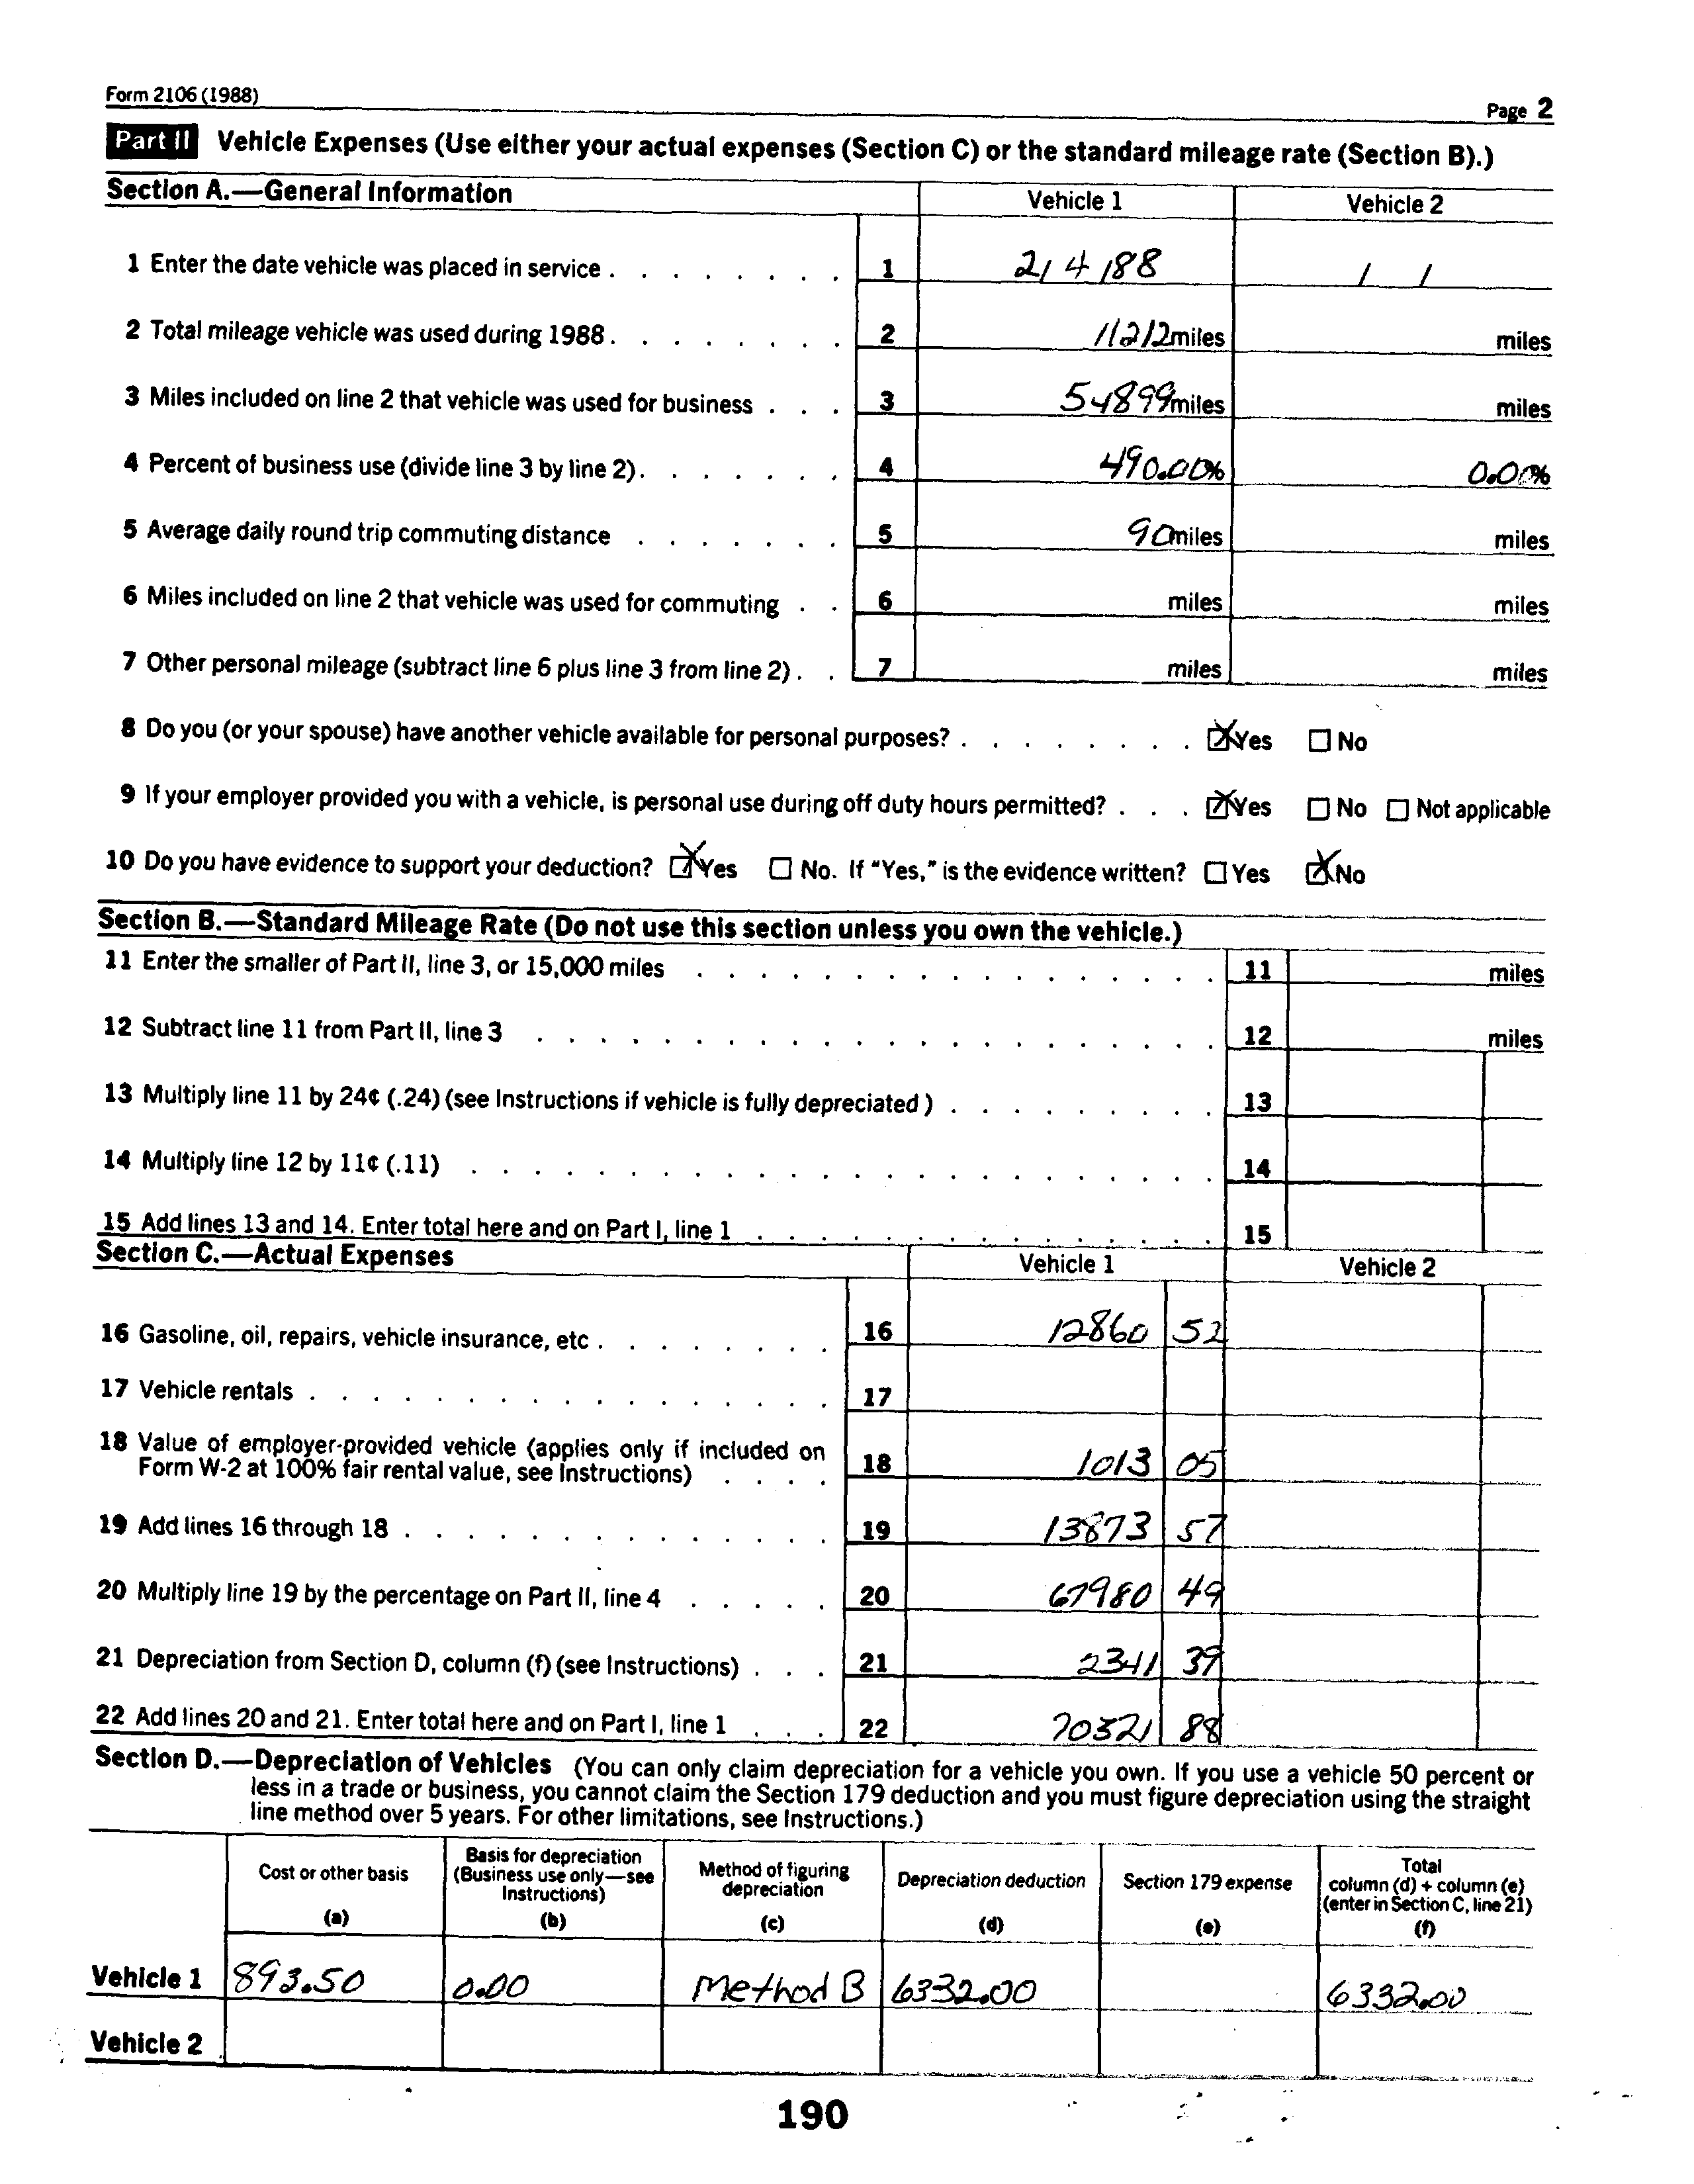 Form 2106 (1988)
Page 2
Part II Vehicle Expenses (Use either your actual expenses (Section C) or the standard mileage rate (Section B).)
Section A.—General Information Vehicle 1 Vehicle 2
1 Enter the date vehicle was placed in service . . . . . . . . 1 2/4/88 / /
2 Total mileage vehicle was used during 1988 . . . . . . . . 2 11212 miles miles
3 Miles included on line 2 that vehicle was used for business . . . 3 54899 miles miles
4 Percent of business use (divide line 3 by line 2) . . . . . . . 4 490.00% 0.00%
5 Average daily round trip commuting distance . . . . . . . 5 90 miles miles
6 Miles included on line 2 that vehicle was used for commuting . . 6 miles miles
7 Other personal mileage (subtract line 6 plus line 3 from line 2) . . 7 miles miles
8 Do you (or your spouse) have another vehicle available for personal purposes? . . . . . . . . ☒ Yes ☐ No
9 If your employer provided you with a vehicle, is personal use during off duty hours permitted? . . . ☒ Yes ☐ No ☐ Not applicable
10 Do you have evidence to support your deduction? ☒ Yes ☐ No. If "Yes," is the evidence written? ☐ Yes ☒ No
Section B.—Standard Mileage Rate (Do not use this section unless you own the vehicle.)
11 Enter the smaller of Part II, line 3, or 15,000 miles . . . . . . . . . . . . . . . . . 11 miles
12 Subtract line 11 from Part II, line 3 . . . . . . . . . . . . . . . . . . . . . . 12 miles
13 Multiply line 11 by 24¢ (.24) (see Instructions if vehicle is fully depreciated ) . . . . . . . . . 13
14 Multiply line 12 by 11¢ (.11) . . . . . . . . . . . . . . . . . . . . . . . . 14
15 Add lines 13 and 14. Enter total here and on Part I, line 1 . . . . . . . . . . . . . . . 15
Section C.—Actual Expenses Vehicle 1 Vehicle 2
16 Gasoline, oil, repairs, vehicle insurance, etc . . . . . . . . 16 12860 52
17 Vehicle rentals . . . . . . . . . . . . . . . . . 17
18 Value of employer-provided vehicle (applies only if included on
Form W-2 at 100% fair rental value, see Instructions) . . . . 18 1013 05
19 Add lines 16 through 18 . . . . . . . . . . . . . . 19 13873 57
20 Multiply line 19 by the percentage on Part II, line 4 . . . . . 20 67980 49
21 Depreciation from Section D, column (f) (see Instructions) . . . 21 2341 39
22 Add lines 20 and 21. Enter total here and on Part I, line 1 . . . 22 70321 88
Section D.—Depreciation of Vehicles (You can only claim depreciation for a vehicle you own. If you use a vehicle 50 percent or
less in a trade or business, you cannot claim the Section 179 deduction and you must figure depreciation using the straight
line method over 5 years. For other limitations, see Instructions.)
Cost or other basis
(a)
Basis for depreciation
(Business use only—see
Instructions)
(b)
Method of figuring
depreciation
(c)
Depreciation deduction
(d)
Section 179 expense
(e)
Total
column (d) + column (e)
(enter in Section C, line 21)
(f)
Vehicle 1 893.50 0.00 Method B 6332.00 6332.00
Vehicle 2
190